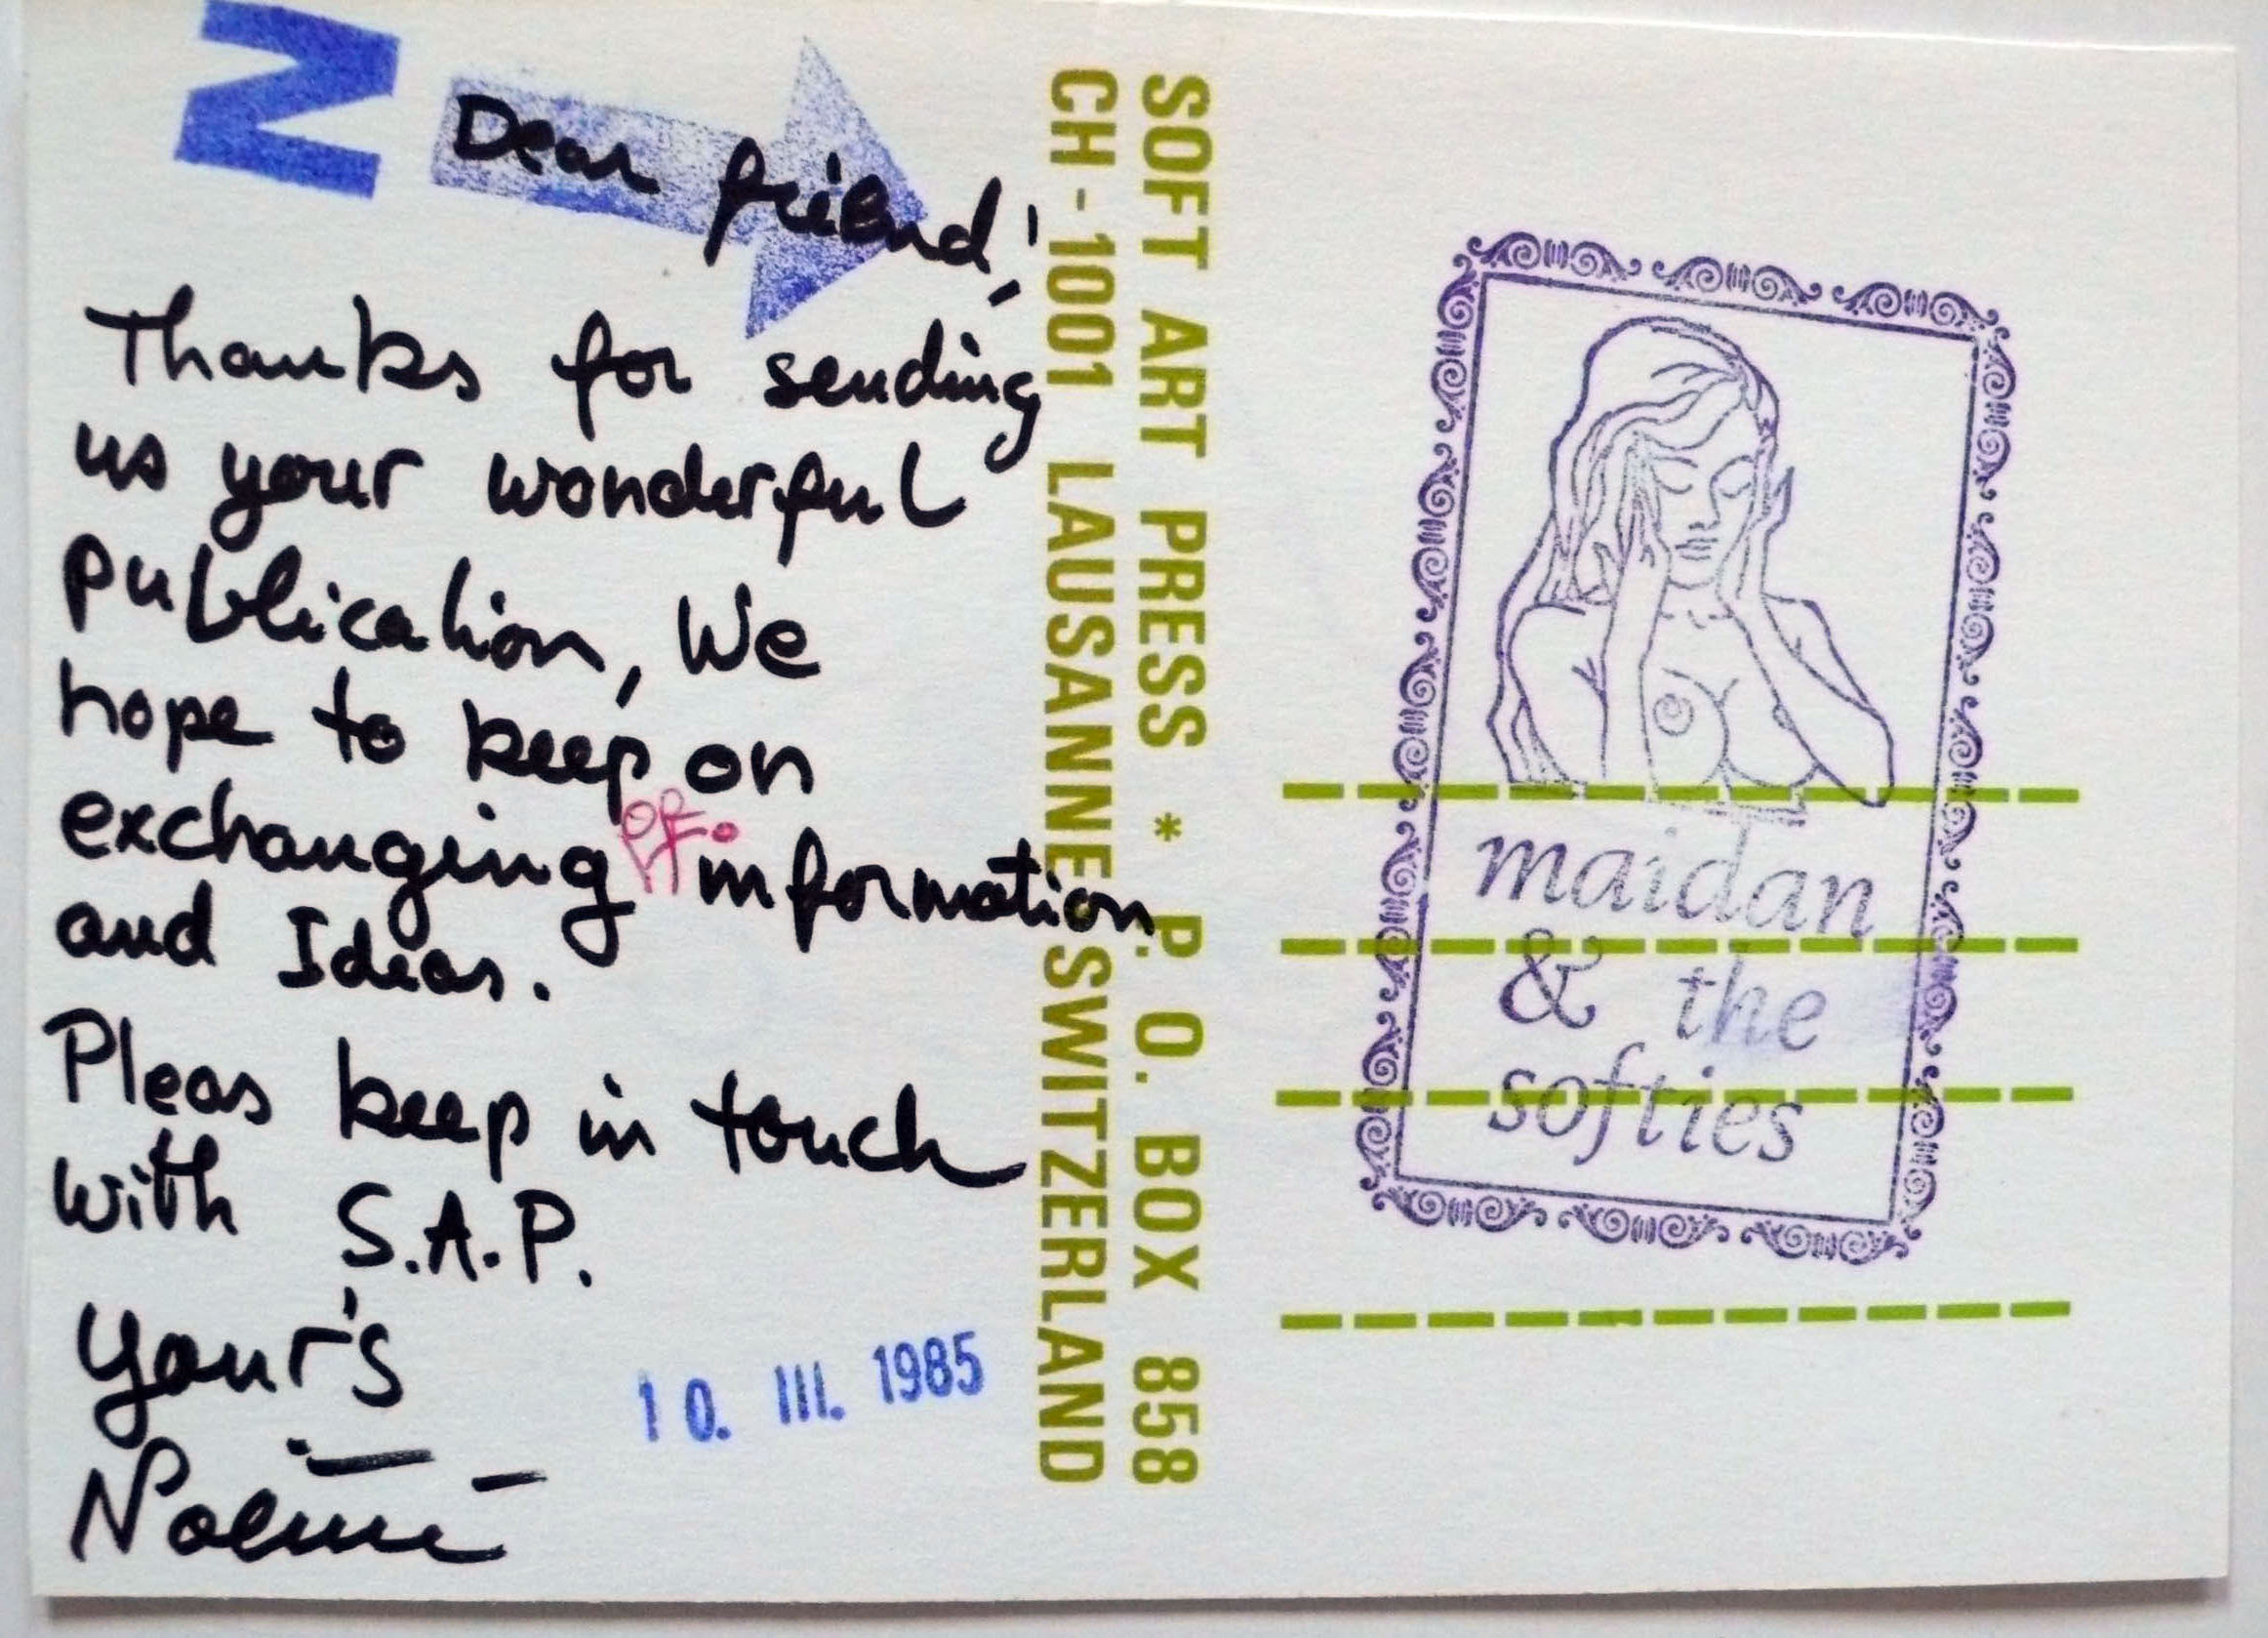 N
Dear friend,
Thanks for sending
us your wonderful
publication, We
hope to keep on
exchanging of information
and Ideas.
Pleas keep in touch
with S.A.P.
Your's
Noemi
10. III. 1985
SOFT ART PRESS * P. O. BOX 858
CH-1001 LAUSANNE SWITZERLAND
maidan
& the
softies